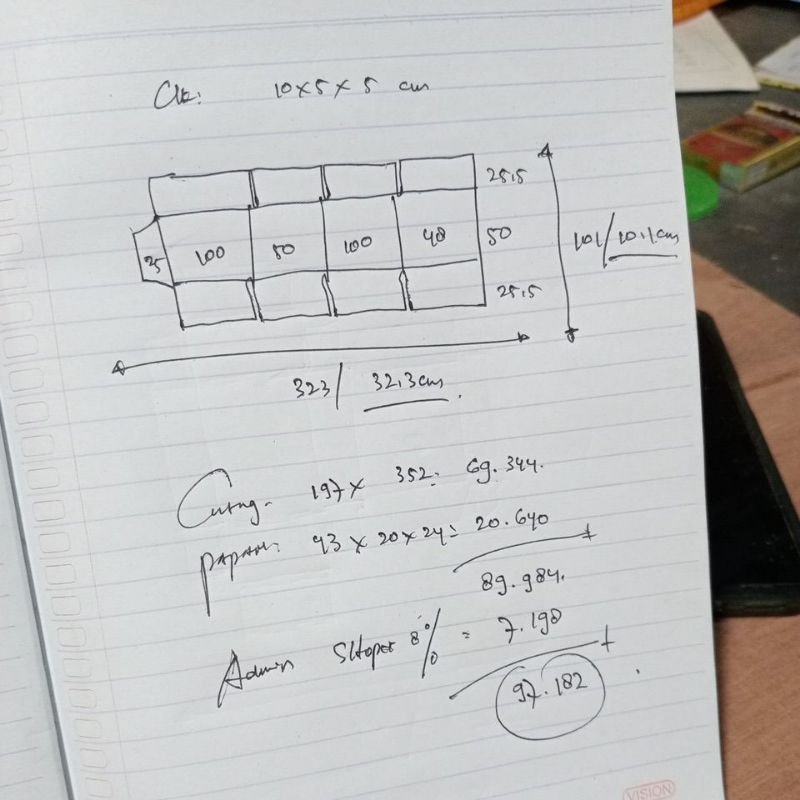 10x5x5 cm
25,5
25 100 50 100 48 50
101/10.1cm
25,5
323/ 32.3cm.
Cutting. 197x 352= 69.344.
papan: 43 x 20x24= 20.640
+
89.984.
Admin Shopee 8% = 7.198
+
97.182
VISION